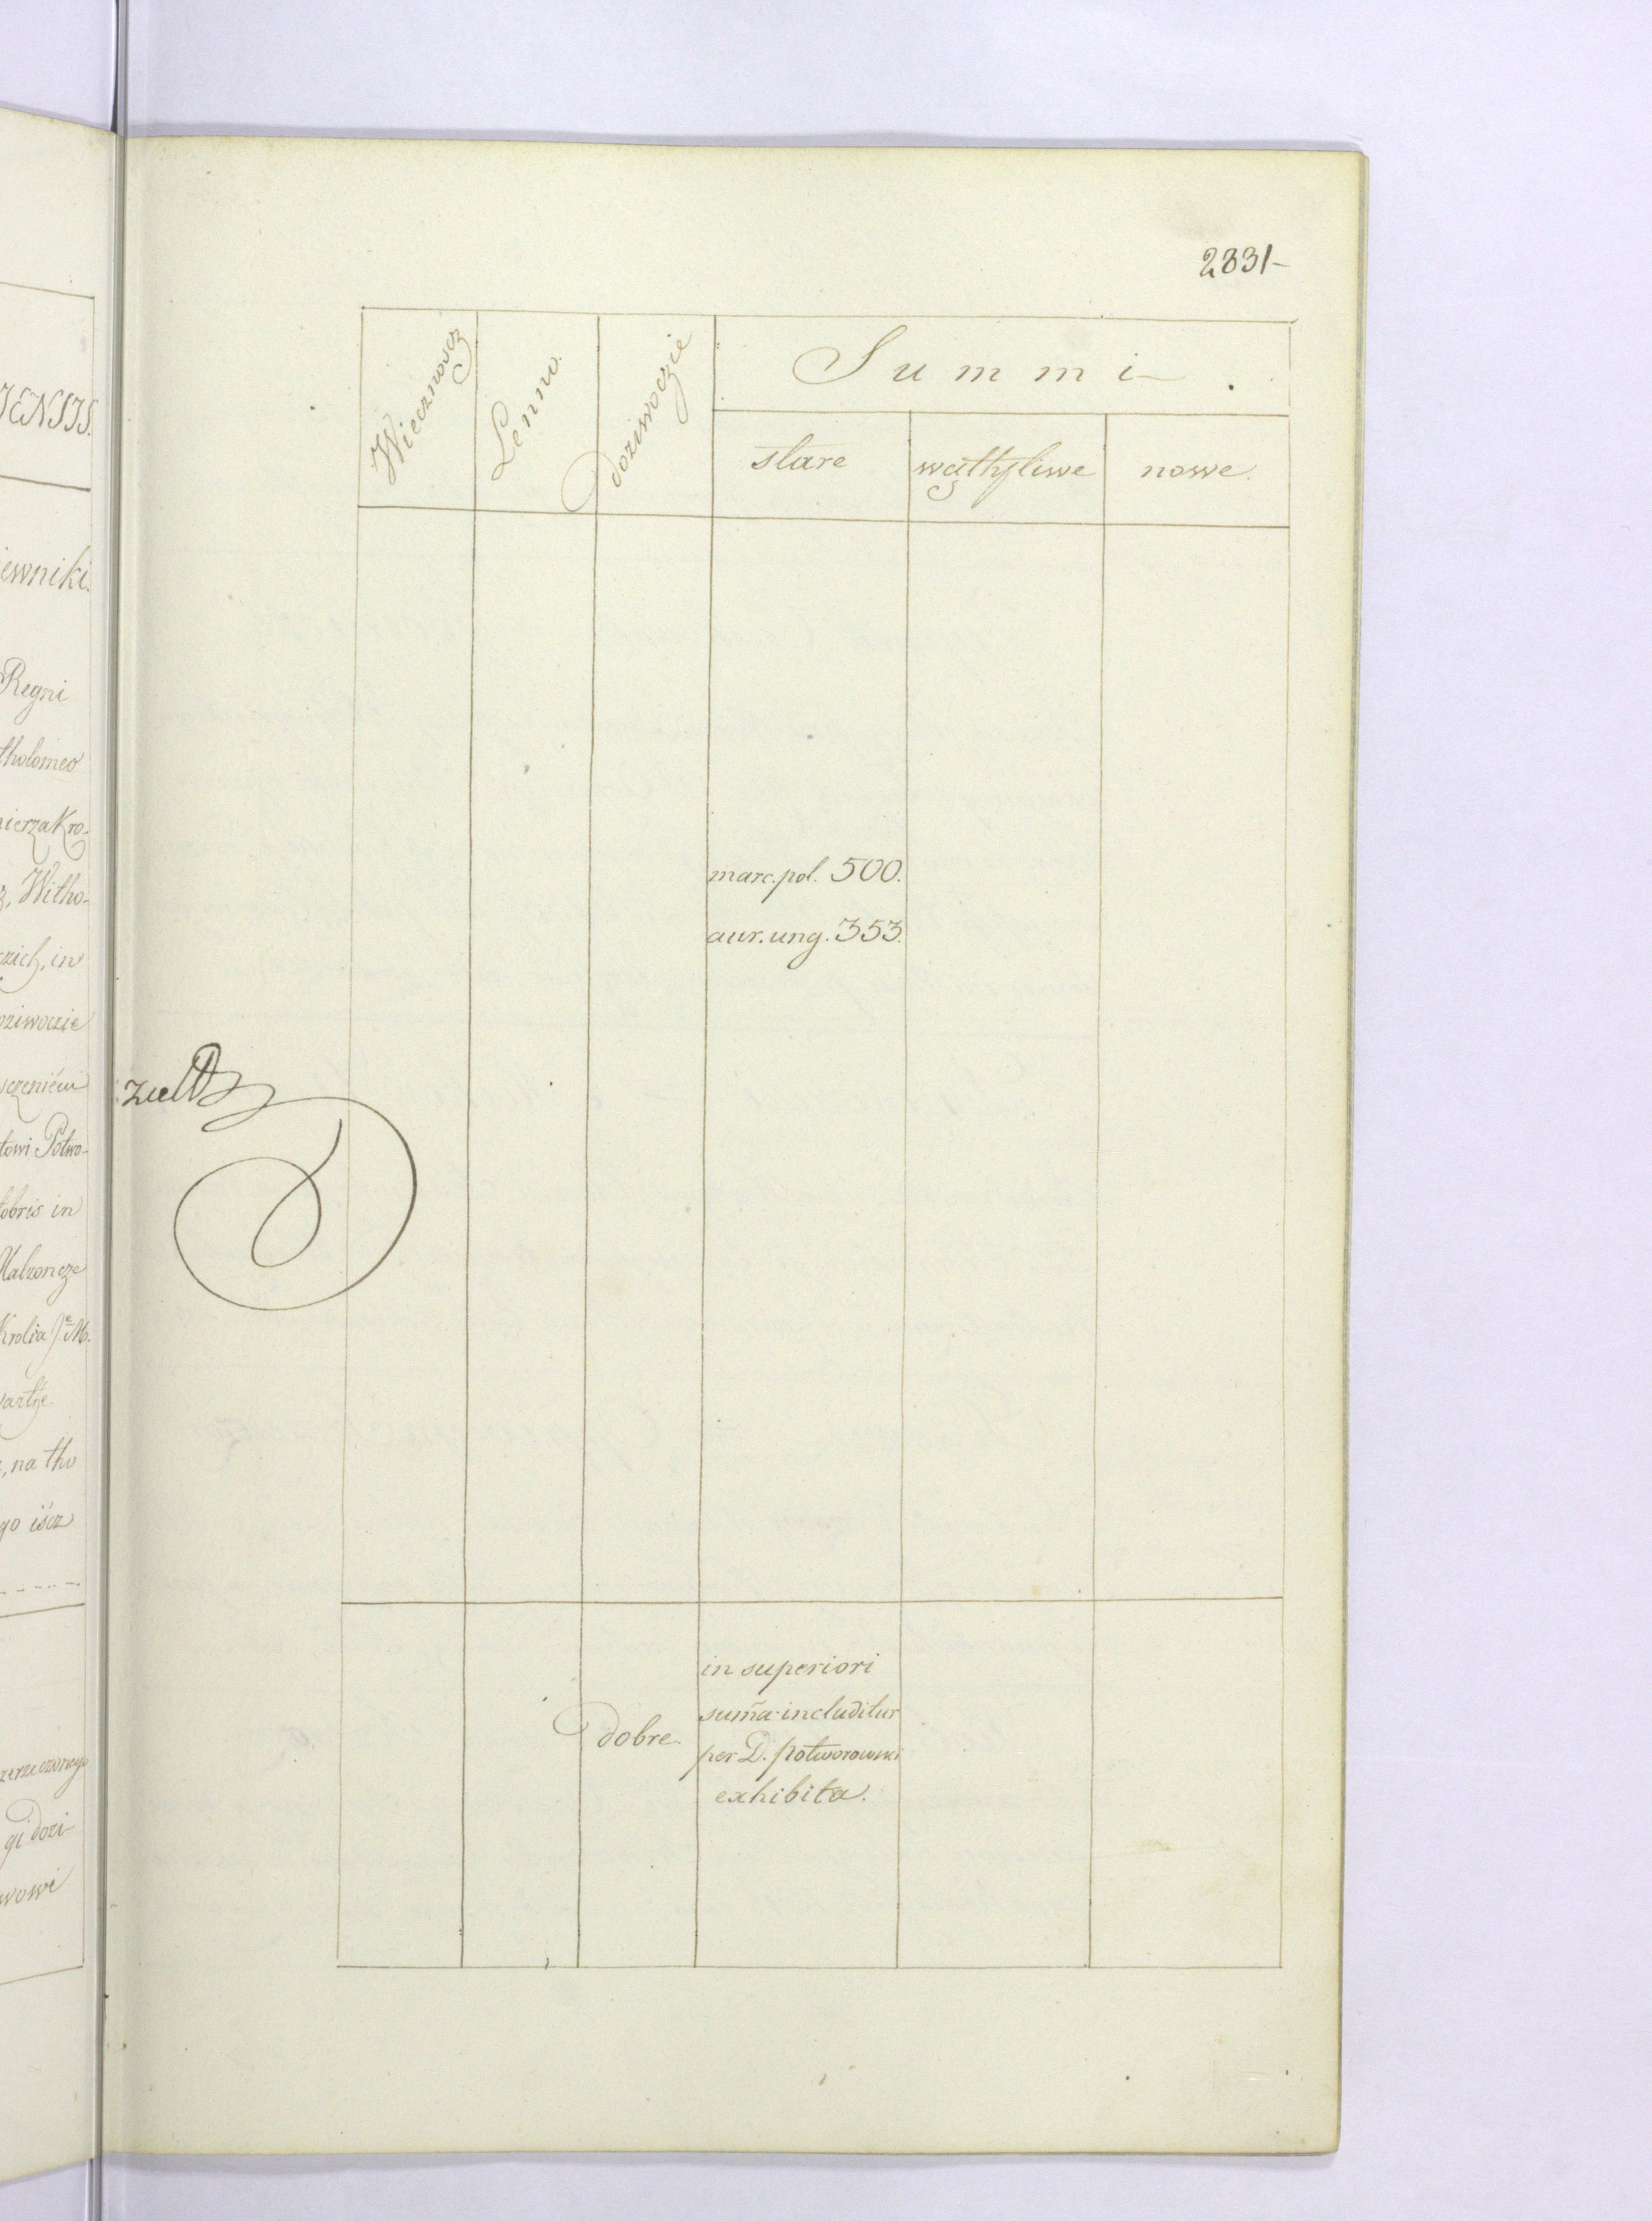 JENSIS.
ewniki.
Regni
tholomeo
nierza Kro-
z, Witho-
czich, in
oziwoczie
sczeniéw
towi Potwo-
tobris in
Malzoncze
Krolia J.e M.
warthe
, na tho
go iścz
zerzeczonego
gi dozi-
wowi
2831-
Wiecznoscz
Lenno.
Doziwoczie
Summi.
stare
wąthpliwe
nowe.
marc. pol. 500.
aur. ung. 353.
in superiori
suma includitur
Dobre.
per D. Potworowski
exhibita.